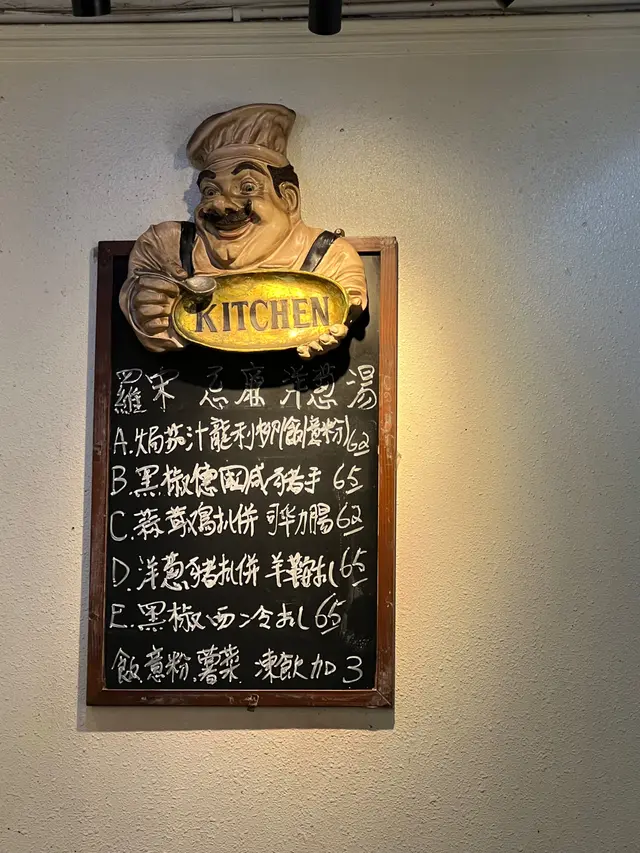 KITCHEN
羅宋 忌廉洋葱湯
A.焗茄汁龍利柳(飯意粉)62
B.黑椒德國咸豬手 65
C.蒜茸鸡扒併 司华力腸62
D.洋葱豬扒併 羊鞍扒65
E.黑椒西冷扒65
飯意粉.薯菜 凍飲加3